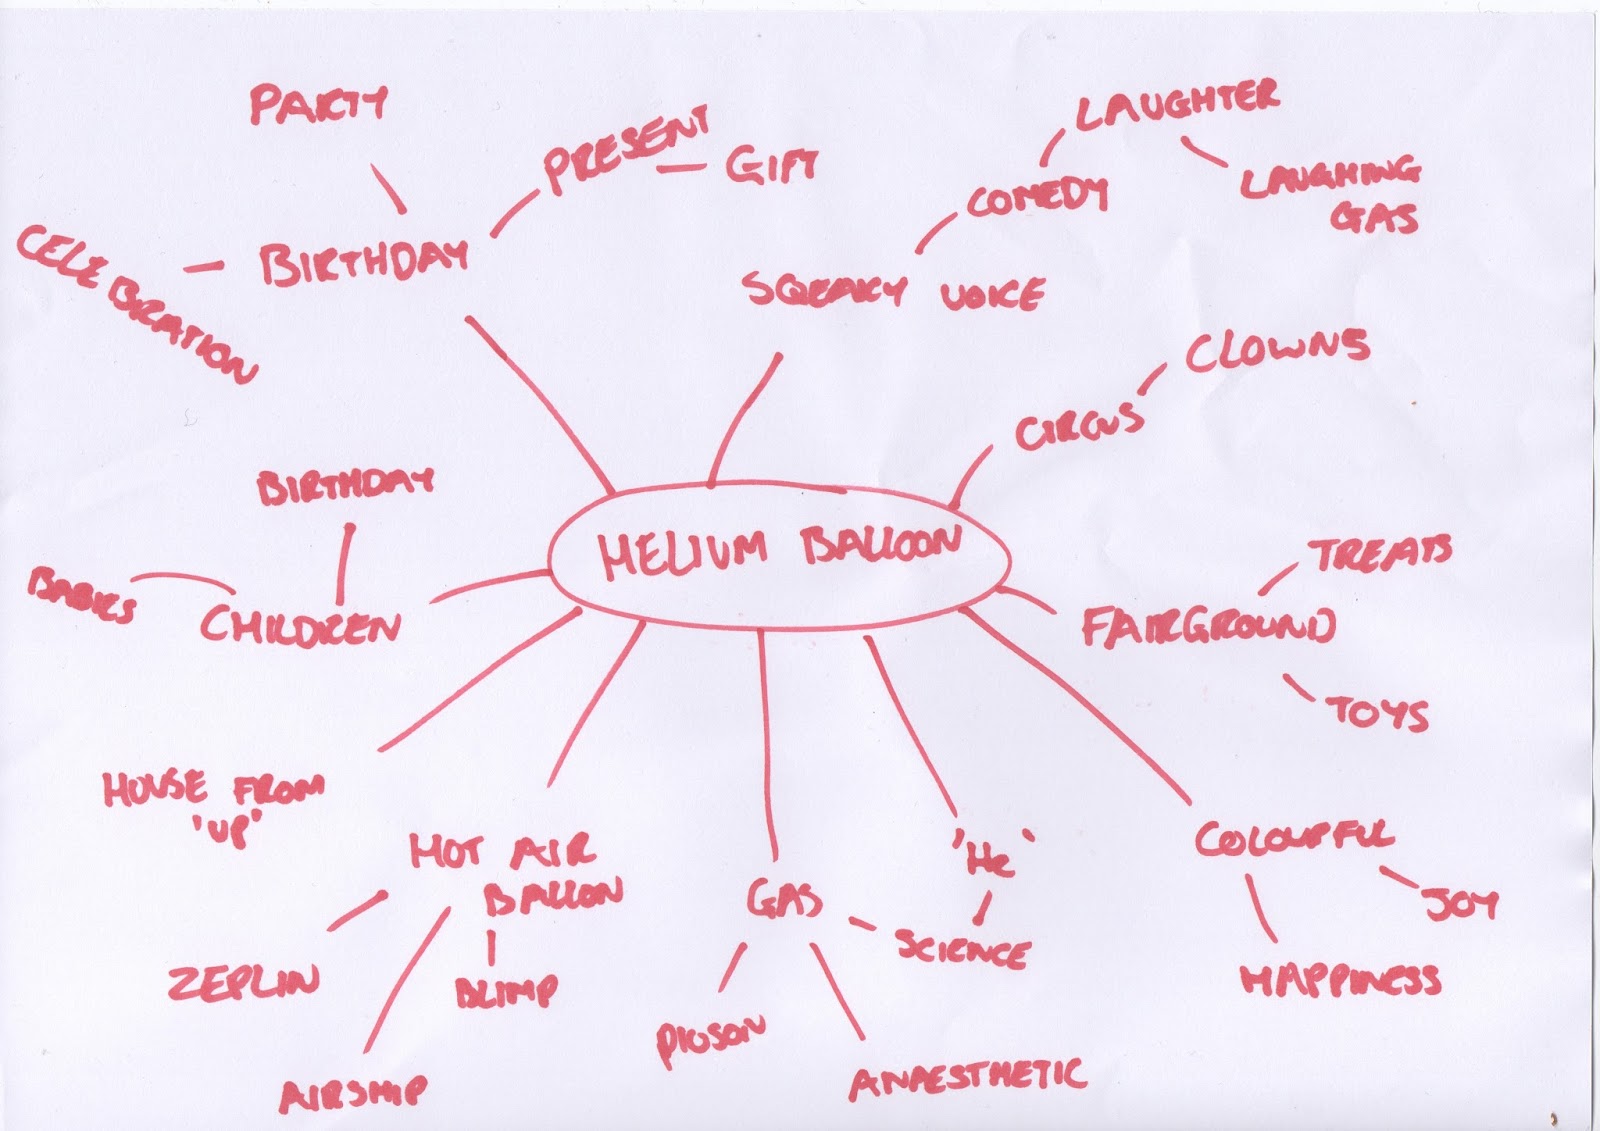 PARTY
PRESENT
GIFT
LAUGHTER
COMEDY
LAUGHING
GAS
CELEBRATION
BIRTHDAY
SQUEAKY VOICE
CLOWNS
CIRCUS
BIRTHDAY
HELIUM BALLOON
TREATS
BABIES
CHILDREN
FAIRGROUND
TOYS
HOUSE FROM
'UP'
HOT AIR
BALLOON
'He'
COLOURFUL
GAS
JOY
SCIENCE
ZEPLIN
BLIMP
HAPPINESS
PIOSON
AIRSHIP
ANAESTHETIC